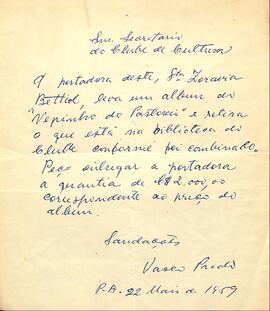 Snr. Secretario
do Clube de Cultura
A portadora deste, Sta Zoravia
Bettiol, leva um album do
"Negrinho do Pastoreio" e retira
o que está na biblioteca do
Clube conforme foi combinado.
Peço entregar a portadora
a quantia de Cr$ 2.000,00
correspondente ao preço do
album.
Saudações
Vasco Prado
P.A. 22 Maio de 1959